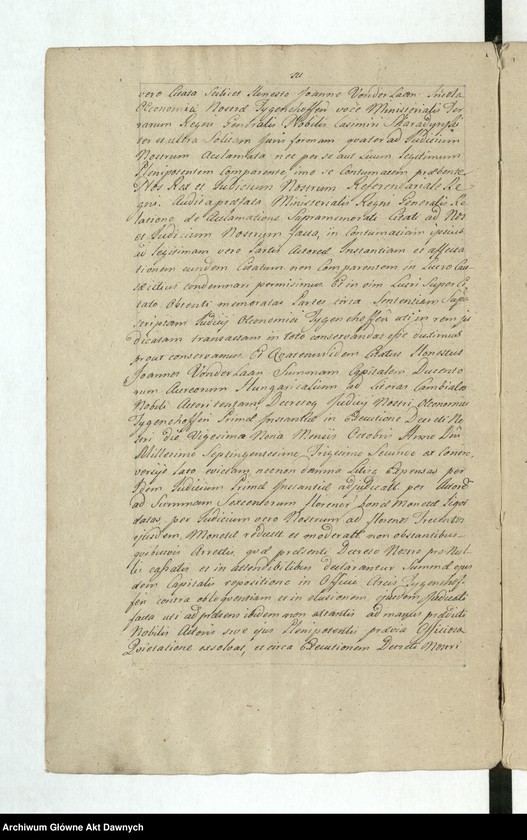 vero Citata Scilicet Honesto Joanne Vonder Laan Incola
Oeconomiæ Nostræ Tygenhoffen voce Ministerialis Ter
rarum Regni Generalis Nobilis Casimiri
ter et ultra Solitam Juris formam quater ad Judicium
Nostrum Acclamata nec per se aut Suum legitimum
Plenipotentem Comparente, imo se Contumacem præbente
Nos Rex et Judicium Nostrum Referendariale Re
gni. Audita præfata Ministerialis Regni Generalis Re
latione de Acclamatione Supramemorati Citati ad Nos
et Judicium Nostrum facta, in Contumaciam ipsius
ad legitimam vero Partis Actoreæ Instantiam et affecta
tionem eundem Citatum non Comparentem in Lucro Cau
sæ citius condemnari permisimus Et in vim Lucri Super Ci
tato Obtenti memoratas Partes circa Sententiam Sup
scriptam Judicii Oeconomici Tygenhoffen uti in rem ju
dicatam transactam in toto conservandas esse duximus
prout conservamus Et Quatenus idem Citatus Honestus
Joannes Vonder Laan Summam Capitalem Ducento
rum Aureorum Hungaricalium ad Literas Cambiales
Nobili Actori tentam Decretoq Judicii Nostri Oeconomici
Tygenhoffen Primæ Instantiæ in Executione Decreti No
stri die Vigesima Nona Mensis Octobris Anno Dni
Millesimo Septingentesimo Trigesimo Secundo ex Contro
versiis lato evictam necnon damna Litis Expensas per
idem Judicium Primæ Instantiæ adjudicatt. per Actorem
ad Summam Sexcentorum florenor bonæ Monetæ liqui
datas, per Judicium vero Nostrum ad florenos Trecentos
ejusdem Monetæ reduct et moderatt non obstantibus
quibusvis Arrestis, quæ præsenti Decreto Nostro pro Nul
lis cassatis et in attendibilibus declarantur Summæ ejus
dem Capitalis repositione in Officio Arcis Tygenhof
fen contra obloquentiam et in elusionem ejusdem Judicati
facta uti ad præsens ibidem non extantis ad manus prædicti
Nobilis Actoris sive ejus Plenipotentis prævia Officiosa
Quietatione exsolvat, et circa Executionem Decreti Nostri
Archiwum Główne Akt Dawnych